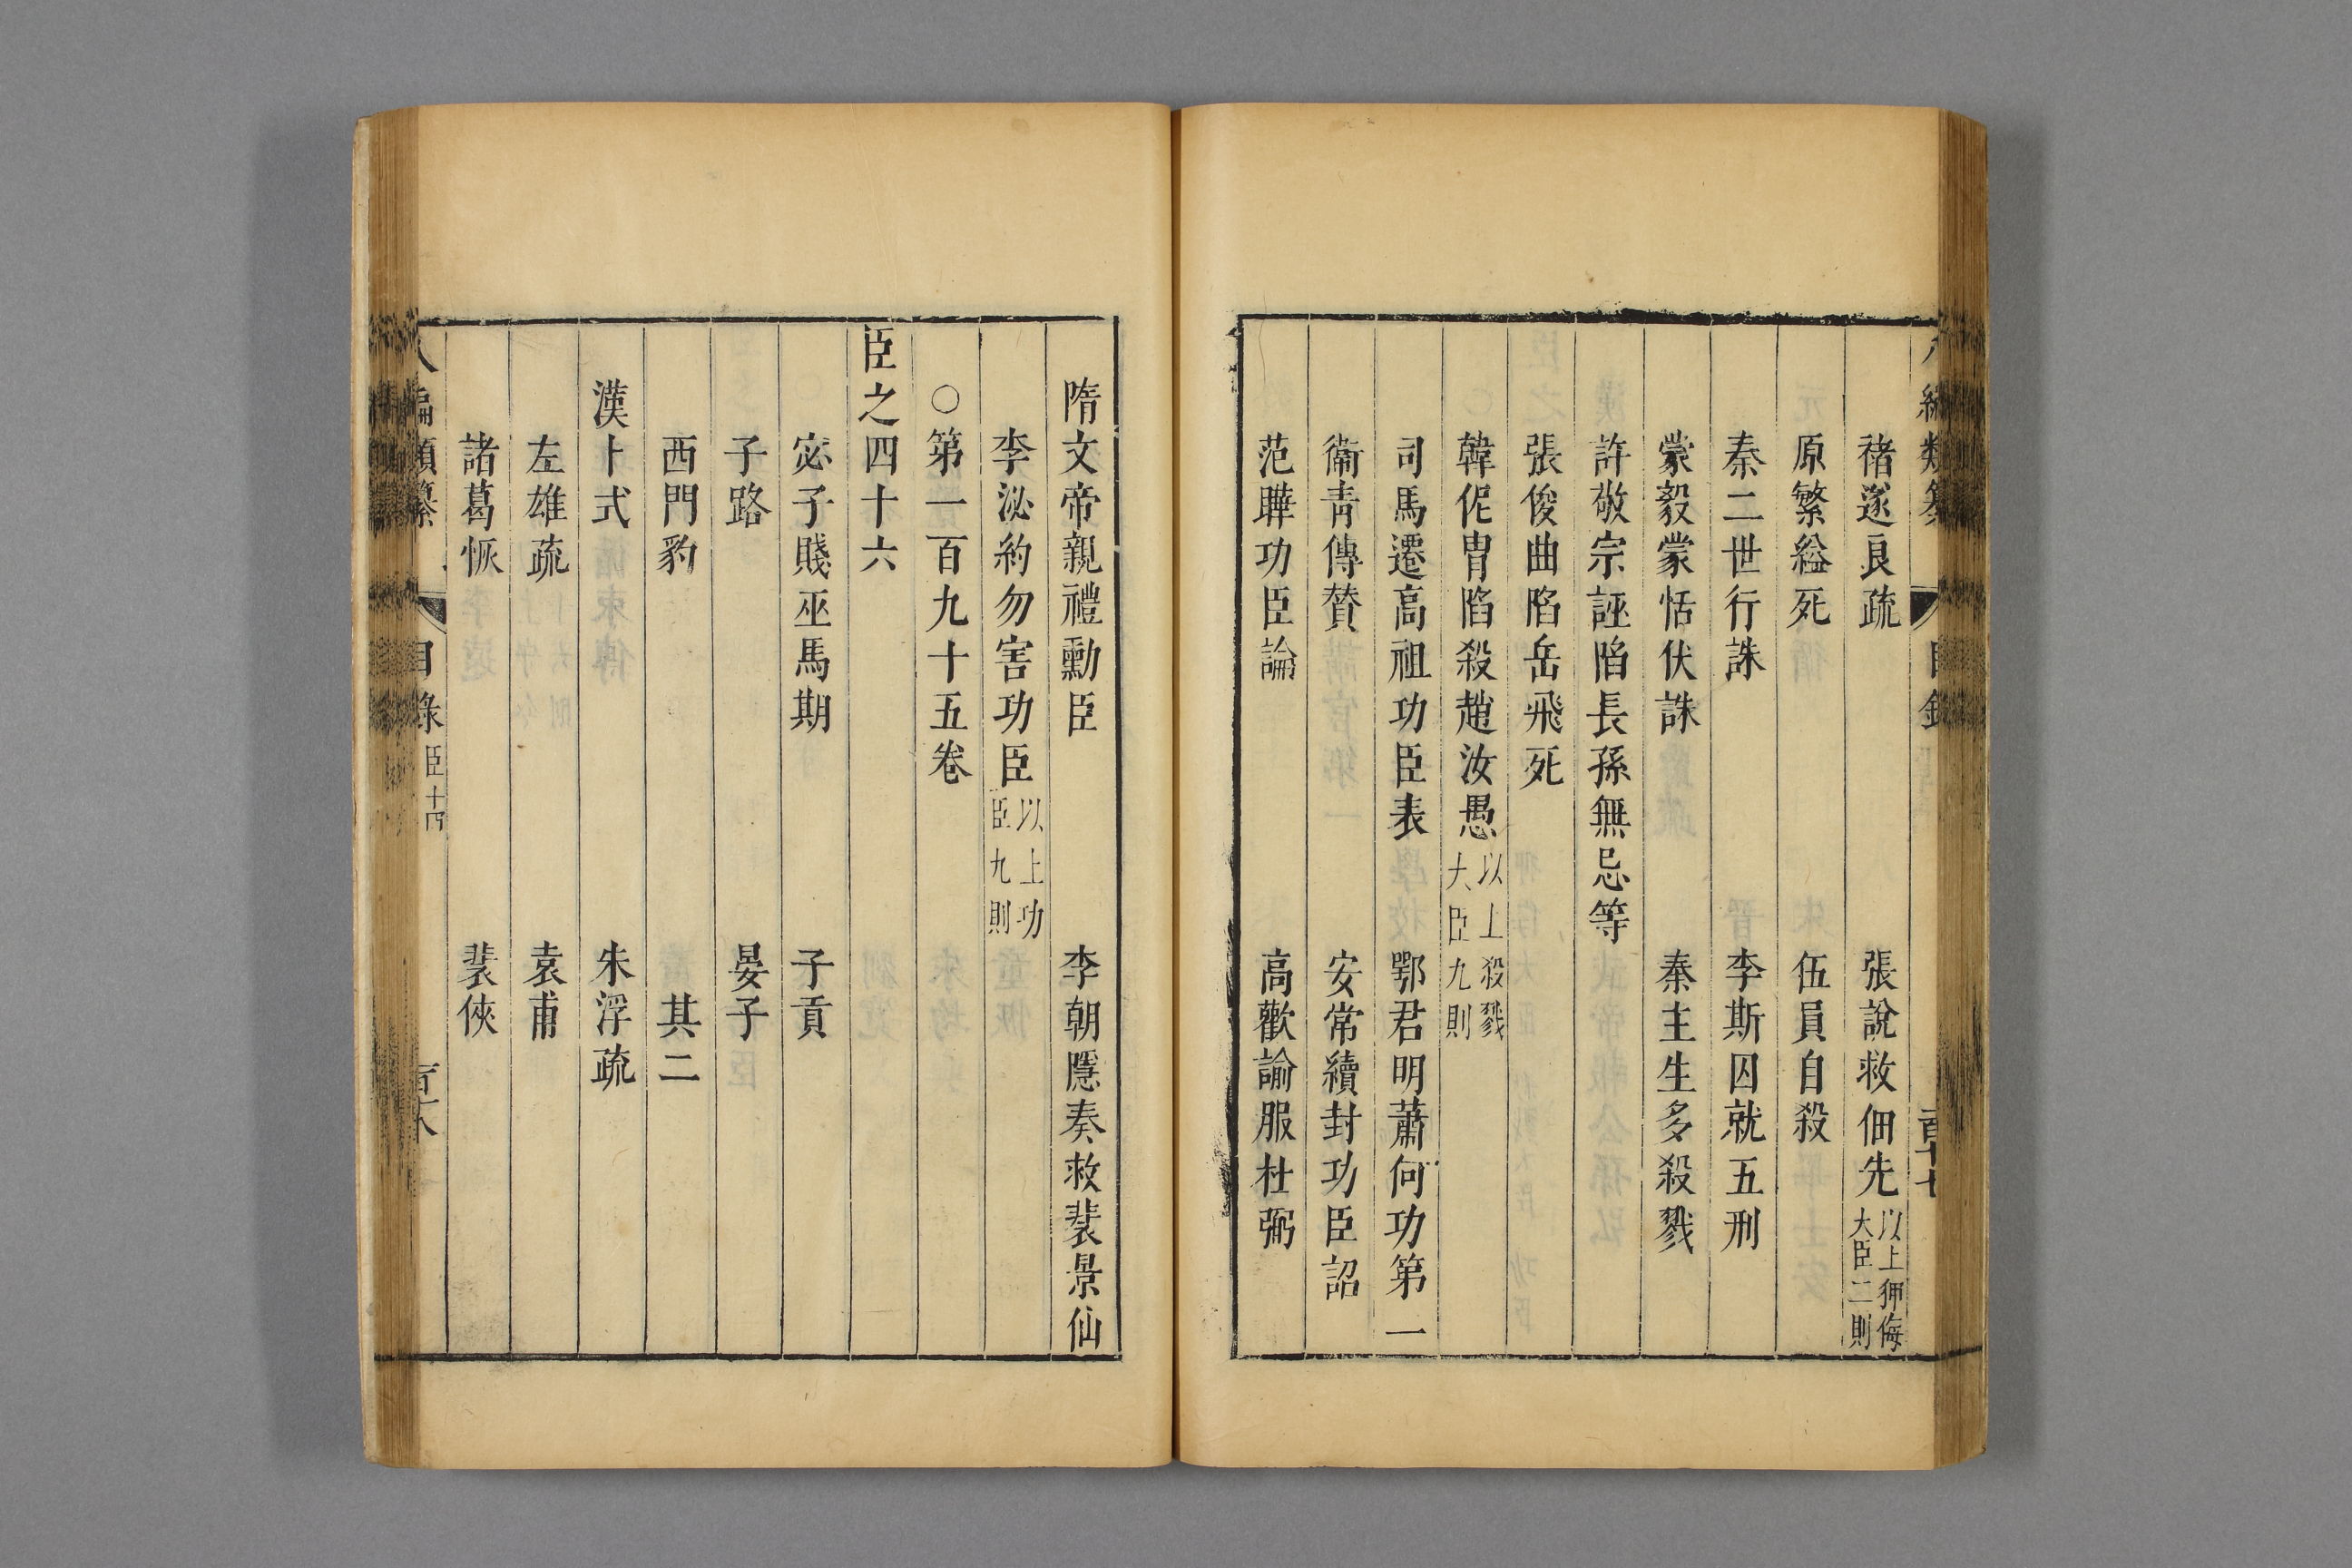 褚遂良疏 張說救佃先 以上狎侮大臣二則
原繁縊死 伍員自殺
秦二世行誅 李斯囚就五刑
蒙毅蒙恬伏誅 秦主生多殺戮
許敬宗誣陷長孫無忌等
張俊曲陷岳飛死
韓侂冑陷殺趙汝愚 以上殺戮大臣九則
司馬遷高祖功臣表 鄂君明蕭何功第一
衞靑傳賛 安常續封功臣詔
范曄功臣論 高歡諭服杜弼
隋文帝親禮勳臣 李朝隱奏救裴景仙
李泌約勿害功臣 以上功臣九則
○第一百九十五卷
臣之四十六
宓子賤巫馬期 子貢
子路 晏子
西門豹 其二
漢卜式 朱浮疏
左雄疏 袁甫
諸葛恢 裴俠
目錄